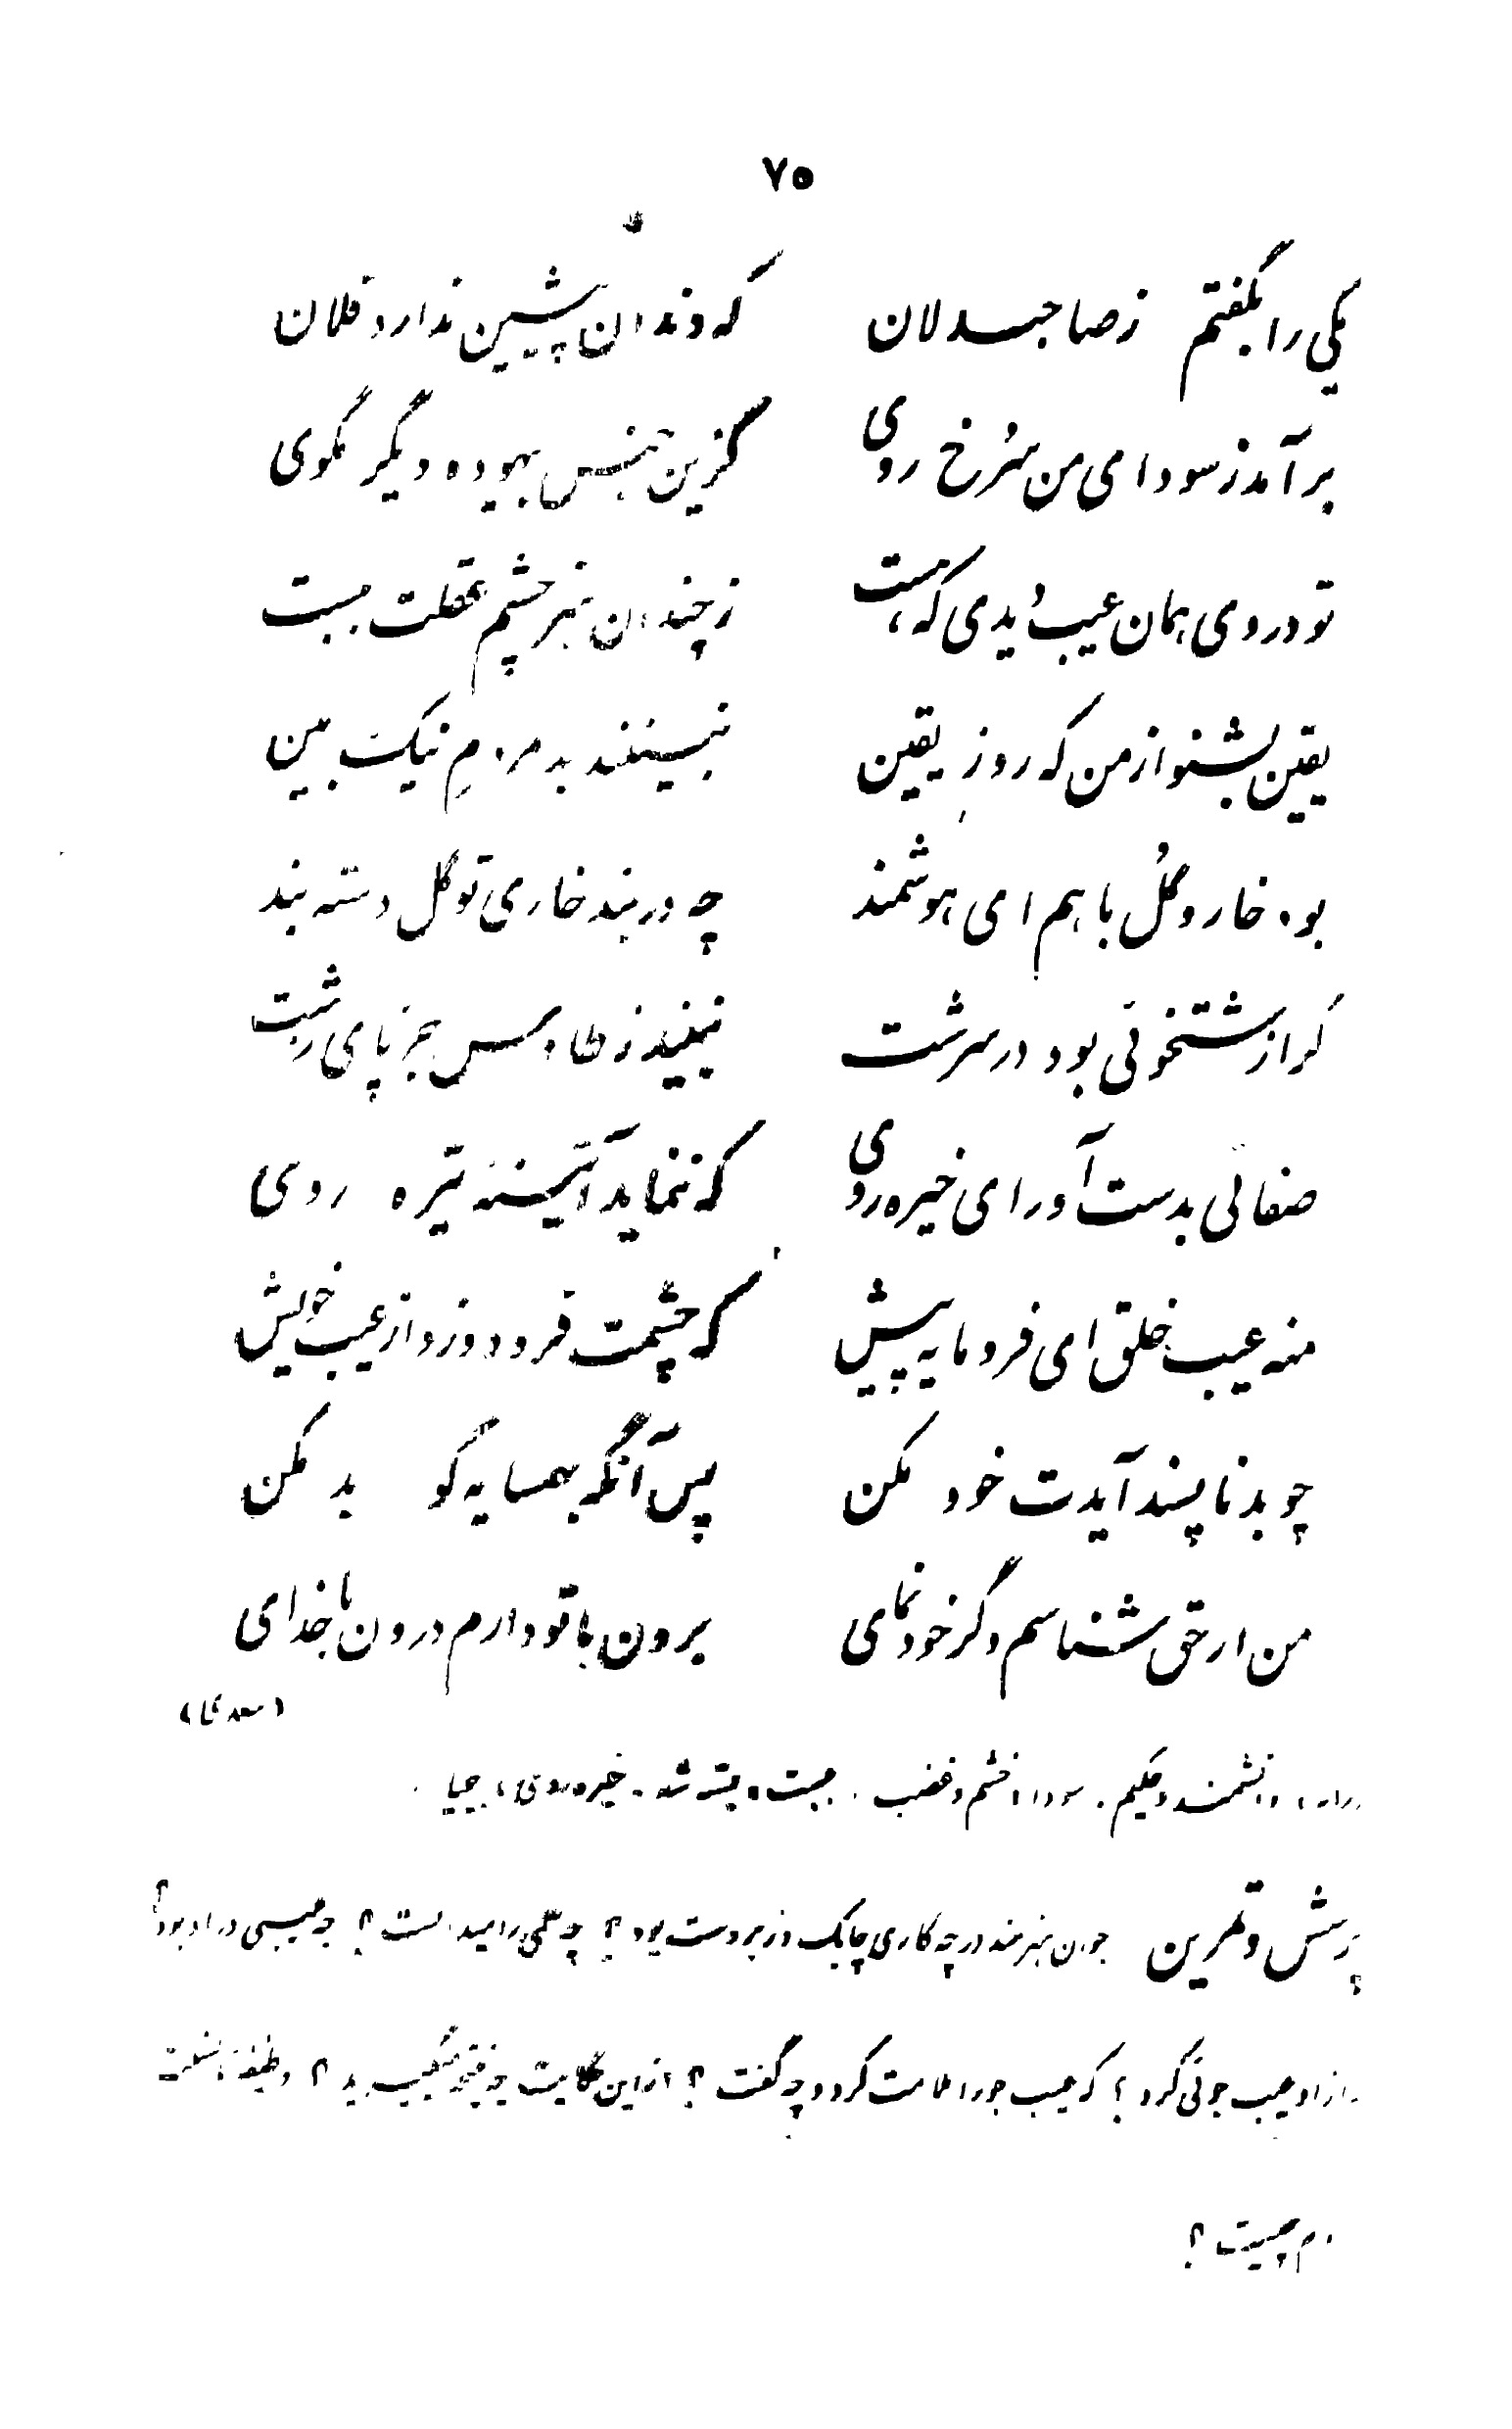 ۷۵
یکی را بگفتم ز صاحبدلان که دندان پیشین ندارد فلان
برآمد ز سودای من سُرخ روی کزین جنس بیهوده دیگر مگوی
تو در وی همان عیب دیدی که هست ز چندان هنر چشم عقلت ببست
یقین بشنو از من که روزِ یقین نبینند بد مردمِ نیک بین
بود خار و گُل با هم ای هوشمند چه در بند خاری تو گل دسته بند
کرا زشتخوئی بود در سرشت نبیند ز طاوس جز پای زشت
صفائی بدست آور ای خیره روی که ننماید آئینه تیره روی
منه عیب خلق ای فرومایه پیش که چشمت فرو دوزد از عیب خویش
چو بد ناپسند آیدت خود مکن پس آنگه بهمسایه گو بد مکن
من ار حق شناسم وگر خودنمای برون با تو دارم درون با خدای
(سعدی)
دانشمند و حکیم. سودا، خشم و غضب. ببست، بسته شد. خیره روی، بیحیا.
پرسش و تمرین جوان هنرمند در چه کاری چابک و زبردست بود؟ چه علمی را میدانست؟ چه عیبی در او بود؟
از او عیب جوئی کرد؟ که عیب جو را ملامت کرد و چه گفت؟ از این حکایت چه نتیجه میگیرید؟ وظیفهٔ
چیست؟